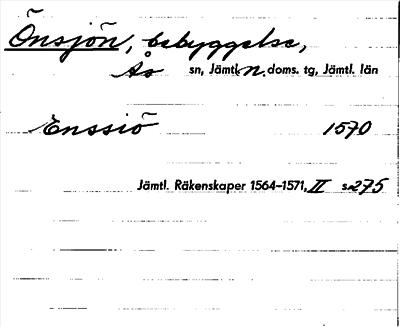 Önsjön, bebyggelse,
Ås sn, Jämtl. n. doms. tg, Jämtl. län
Enssiö 1570
Jämtl. Räkenskaper 1564-1571, II s. 275